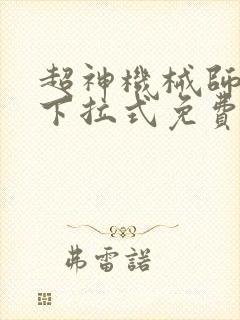 超神機械師
下拉式免費
弗雷諾